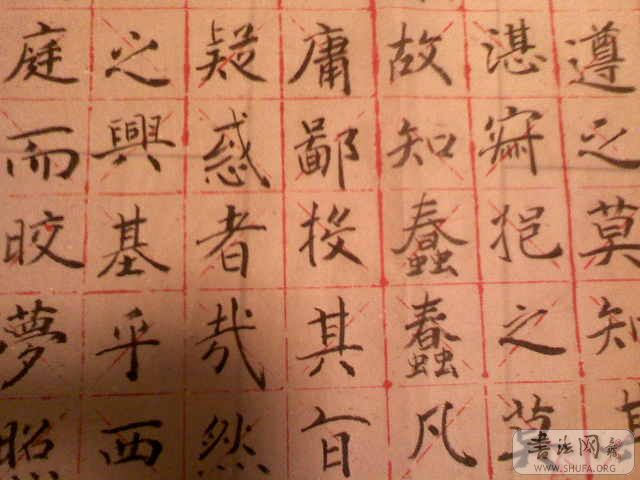 遵之莫知其
湛寂挹之莫
故知蠢蠢凡
庸鄙投其旨
疑惑者哉然
之興基乎西
庭而晈夢照
書法网
WWW.SHUFA.ORG